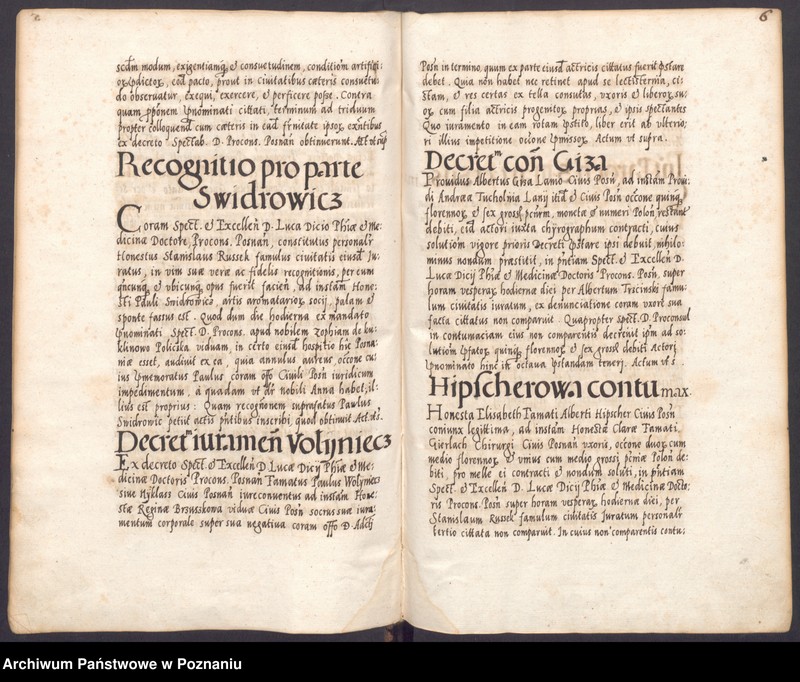 scdm modum, exigentiamq, et consuetudinem, conditiom artifici:
pacto, prout in civitatibus cæteris consuetu
do observatur, exequi, exercere, et perficere posse. Contra
quam pponem pnominati cittati, terminum ad triduum
propter colloquend cum cæteris in ead frnitate ipsor, exntibus
ex decreto Spectab. D. Procons. Posnan obtinuerunt. Act ut sup
Recognitio pro parte
Swidrowicz
Coram Spect. et Excellen D. Luca Dicio Phiæ et Me:
dicina Doctore, Procons. Posnan, constitutus personalr
Honestus Stanislaus Russek famulus civitatis eiusd Ju:
ratus, in vim suæ veræ ac fidelis recognitionis, per eum
qncunq et ubicunq opus fuerit facien, ad instam Hone:
sti Pauli Swidrowicz, artis aromatarior socij, palam et
sponte fassus est. Quod dum die hodierna ex mandato
pnominati Spect. D. Procons. apud nobilem Zophiam de Ku:
klinowo Policzka viduam, in certo eiusd hospitio hic Posna:
niæ esset, audivit ex ea, quia annulus aureus, occone cu:
ius pmemoratus Paulus coram offo Civili Posn iuridicum
impedimentum, a quadam ut dr nobili Anna habet, il:
lius est proprius. Quam recognonem suprafatus Paulus
Swidrowic petiit actis pntibus inscribi, quod obtinuit Act. ut s.
Decretm iuramen Wolyniecz
Ex decreto Spect. et Excellen D Lucæ Dicij Phiæ et Me:
dicinæ Doctoris Procons. Posnan Famatus Paulus Wolyniecz
sive Myklass Civis Posnan iureconventus ad instam Hone:
stæ Reginæ Brzusskowa viduæ Civis Posn socrus suæ iura:
mentum corporale super sua negativa coram offo D. Adcij
6
Posn in termino, quum ex parte eiusd actricis cittatus fuerit pstare
debet. Quia non habet nec retinet apud se lectisternia, ci:
stam, et res certas ex tella consutas, uxoris et liberor, su:
or, cum filia actricis progenitor, proprias, et ipsis spectantes
Quo iuramento in eam rotam pstito, liber erit ab ulterio:
ri illius impetitione occone pmissor. Actum ut supra.
Decretm con Giza
Providus Albertus Giza Lanio Civis Posn, ad instam Provi:
di Andreæ Tucholnia Lanij itid et Civis Posn occone quinq
florenor, et sex gross pcnrm, monetæ et numeri Polon restante
debiti, eid actori iuxta chyrographum contracti, cuius
solutiom vigore prioris Decreti pstare ipsi debuit, nihilo:
minus nondum præstitit, in pntiam Spect. et Excellen D.
Lucæ Dicij Phiæ et Medicinæ Doctoris Procons. Posn. super
horam vesperar hodierna diei per Albertum Trzcinski famu:
lum civitatis iuratum, ex denunciatione coram uxore sua
facta cittatus non comparuit. Quapropter Spect. D. Proconsul
in contumaciam eius non comparentis decrevit ipm ad so:
lutiom pfator quinq florennor, et sex gross debiti Actori
pnominato hinc it octava pstandam teneri. Actum ut s.
Hipscherowa contumax.
Honesta Elisabeth Famati Alberti Hipscher Civis Posn
coniunx legittima, ad instam Honestæ Claræ Famati
Gierlach Chirurgi Civis Posnan uxoris, occone duor cum
medio florennor, et unius cum medio grossi pcniæ Polon de:
biti, pro melle ei contracti et nondum soluti, in pntiam
Spect. et Excellen D. Lucæ Dicij Phiæ et Medicinæ Docto:
ris Procons. Posn super horam vesperar hodiernæ diei, per
Stanislaum Russek famulum civitatis Juratum personalr
tertio cittata non comparuit. In cuius non comparentis contu:
Archiwum Państwowe w Poznaniu